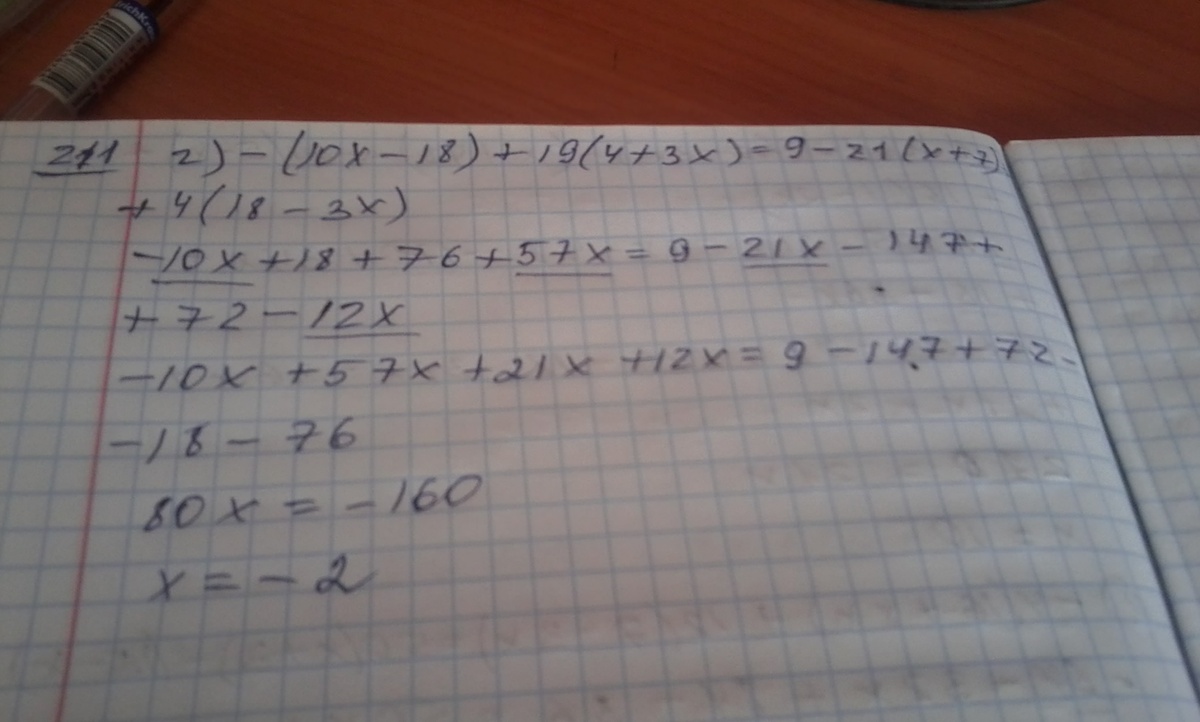 211 г) - (10x - 18) + 19(4 + 3x) = 9 - 21(x + 7)
+ 4(18 - 3x)
-10x + 18 + 76 + 57x = 9 - 21x - 147 +
+ 72 - 12x
-10x + 57x + 21x + 12x = 9 - 147 + 72 -
-18 - 76
80x = -160
x = -2